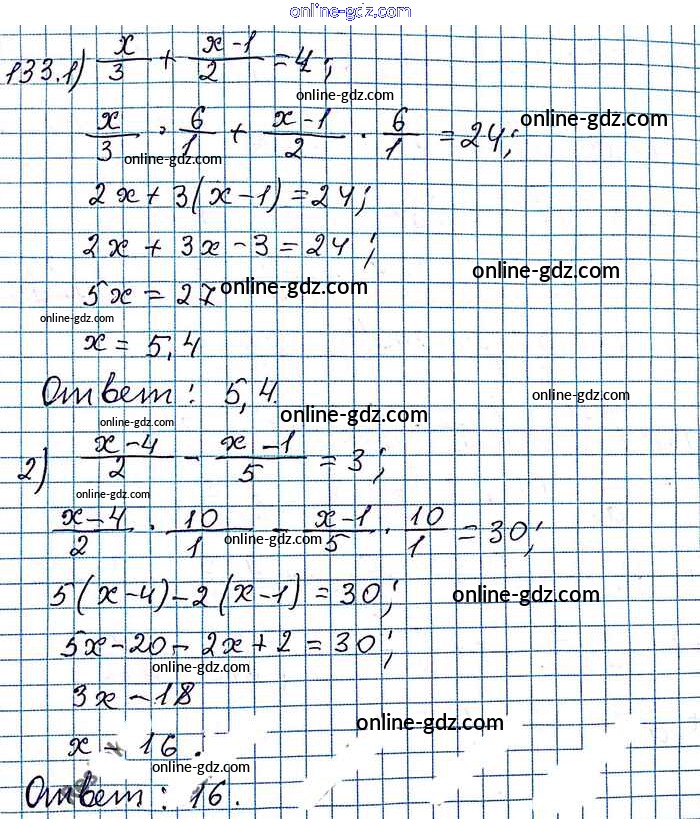 online-gdz.com
133.1) x/3 + x-1/2 = 4;
online-gdz.com
online-gdz.com
x/3 · 6/1 + x-1/2 · 6/1 = 24;
online-gdz.com
2x + 3(x-1) = 24;
2x + 3x - 3 = 24;
online-gdz.com
5x = 27
online-gdz.com
online-gdz.com
x = 5,4
Ответ: 5,4.
online-gdz.com
online-gdz.com
online-gdz.com
2) x-4/2 - x-1/5 = 3;
online-gdz.com
x-4/2 · 10/1 - x-1/5 · 10/1 = 30;
online-gdz.com
5(x-4)-2(x-1) = 30;
online-gdz.com
5x-20-2x+2 = 30;
online-gdz.com
3x - 18
online-gdz.com
x - 16.
online-gdz.com
Ответ: 16.